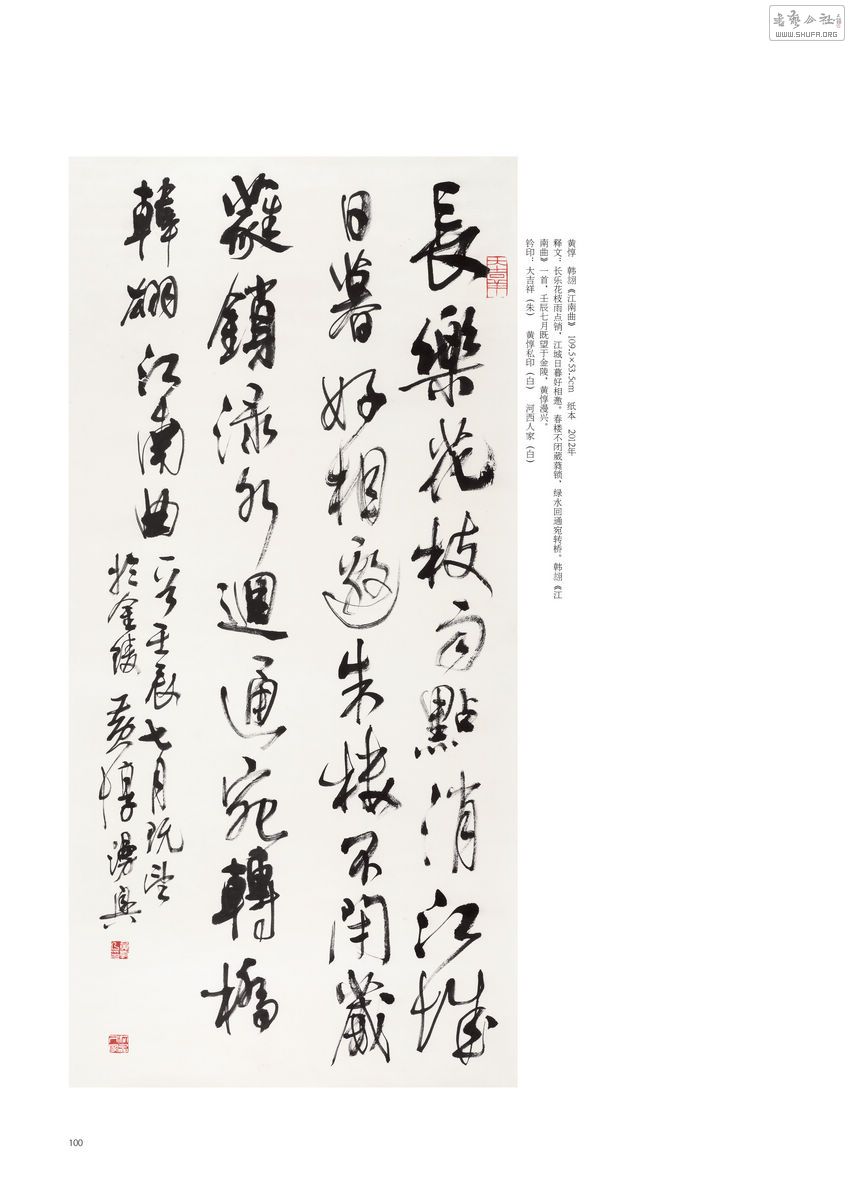 书艺公社
WWW.SHUFA.ORG
黄惇 韩翃《江南曲》 109.5×53.5cm 纸本 2012年
释文：长乐花枝雨点销，江城日暮好相邀。春楼不闭葳蕤锁，绿水回通宛转桥。韩翃《江
南曲》一首，壬辰七月既望于金陵，黄惇漫兴。
钤印：大吉祥（朱） 黄惇私印（白） 河西人家（白）
長樂花枝雨點消江城
日暮好相邀朱樓不閉葳
蕤鎖渌水迴通宛轉橋
韓翃江南曲一首壬辰七月既望
於金陵黃惇漫興
100